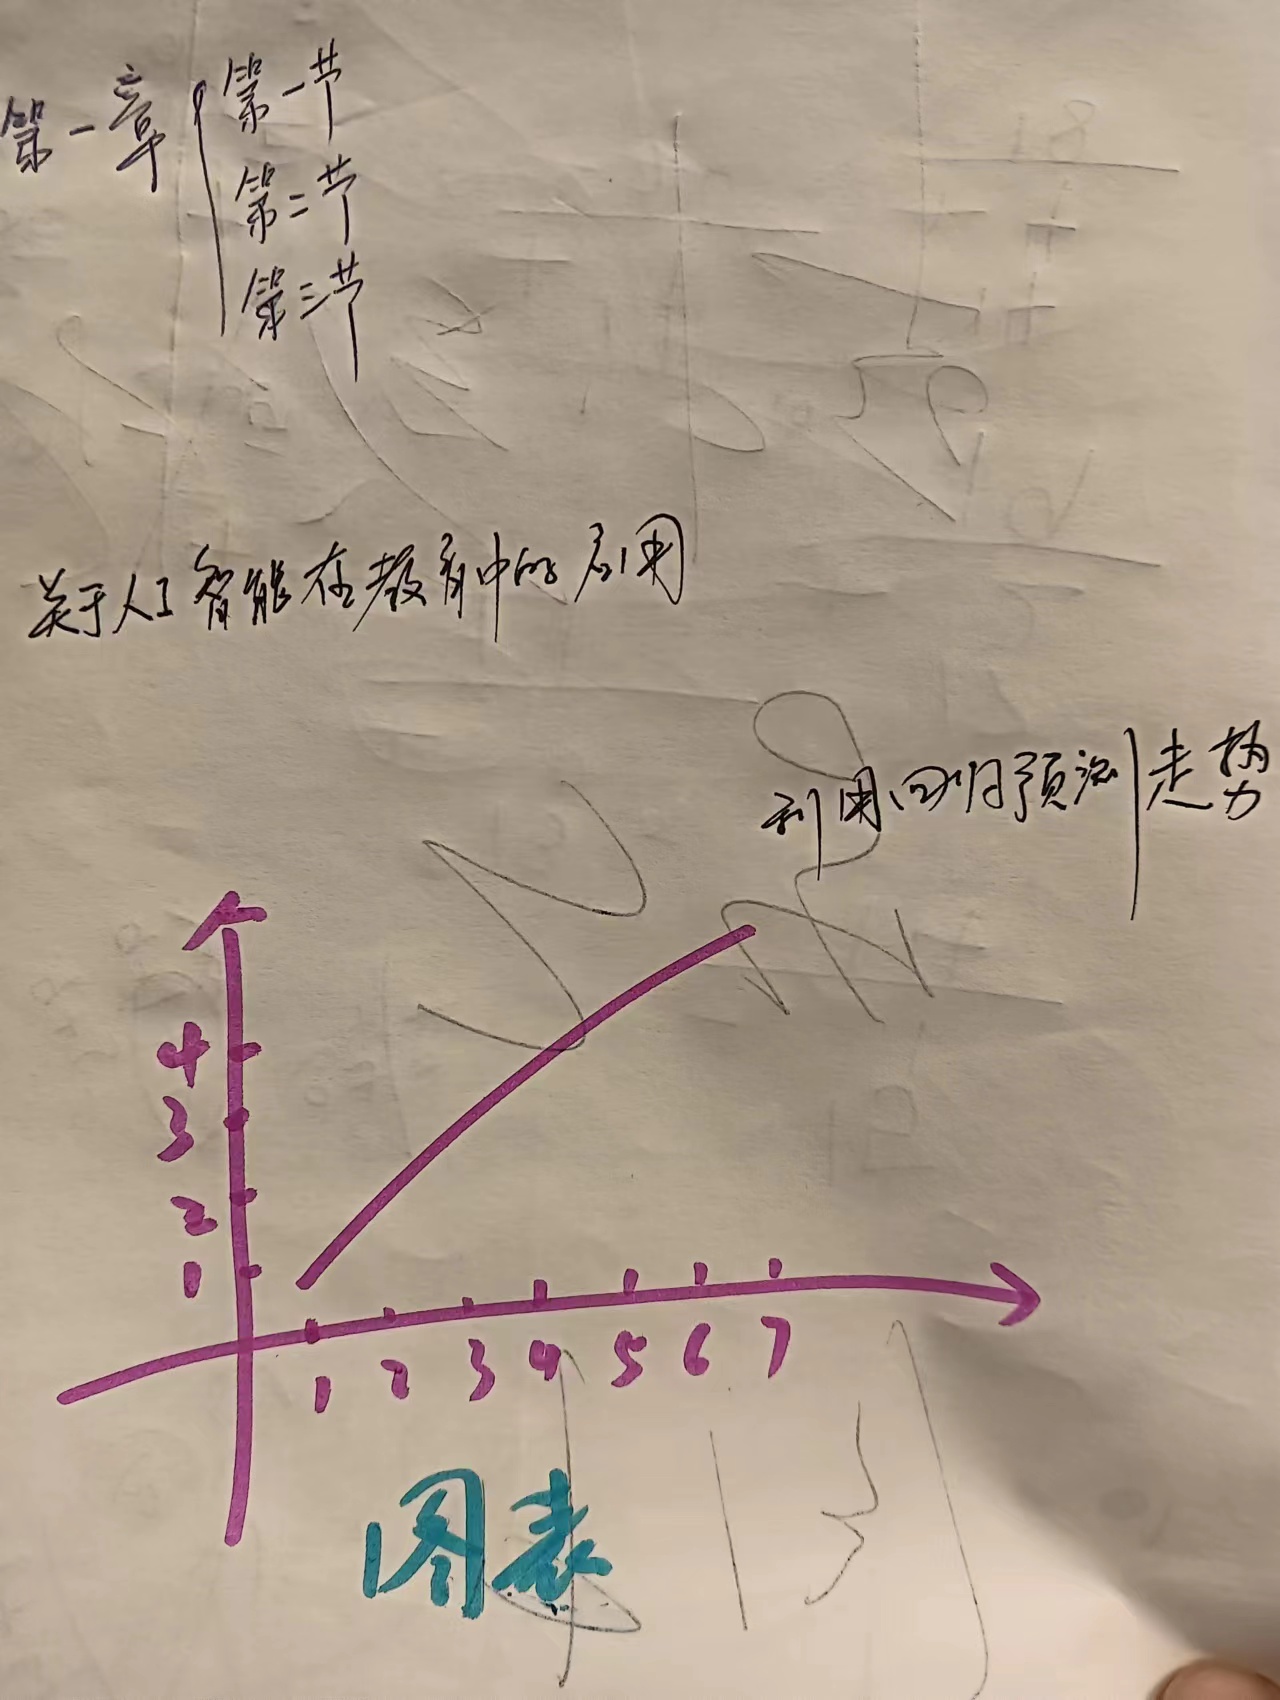 第一章
第一节
第二节
第三节
关于人工智能在教育中的应用
利用回归预测走势
4
3
2
1
1 2 3 4 5 6 7
图表